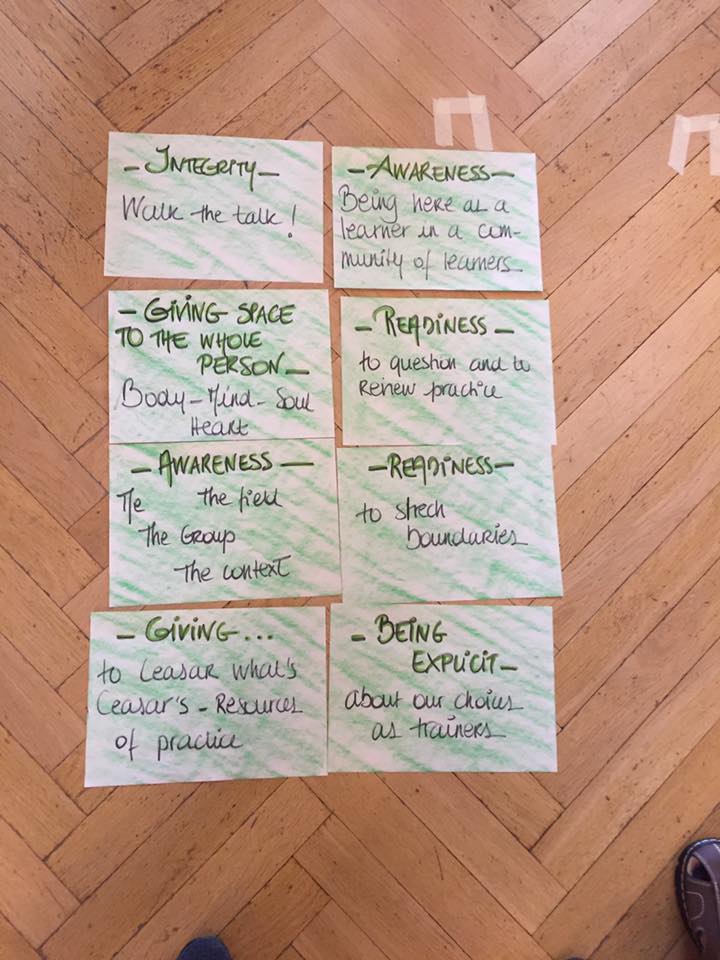 - INTEGRITY -
Walk the talk!
- AWARENESS -
Being here as a
learner in a com-
munity of learners
- GIVING SPACE
TO THE WHOLE
PERSON -
Body - Mind - Soul
Heart
- READINESS -
to question and to
Renew practice
- AWARENESS -
Me the field
The Group
The context
- READINESS -
to strech
boundaries
- GIVING...
to Ceasar what's
Ceasar's - Resources
of practice
- BEING
EXPLICIT -
about our choices
as trainers